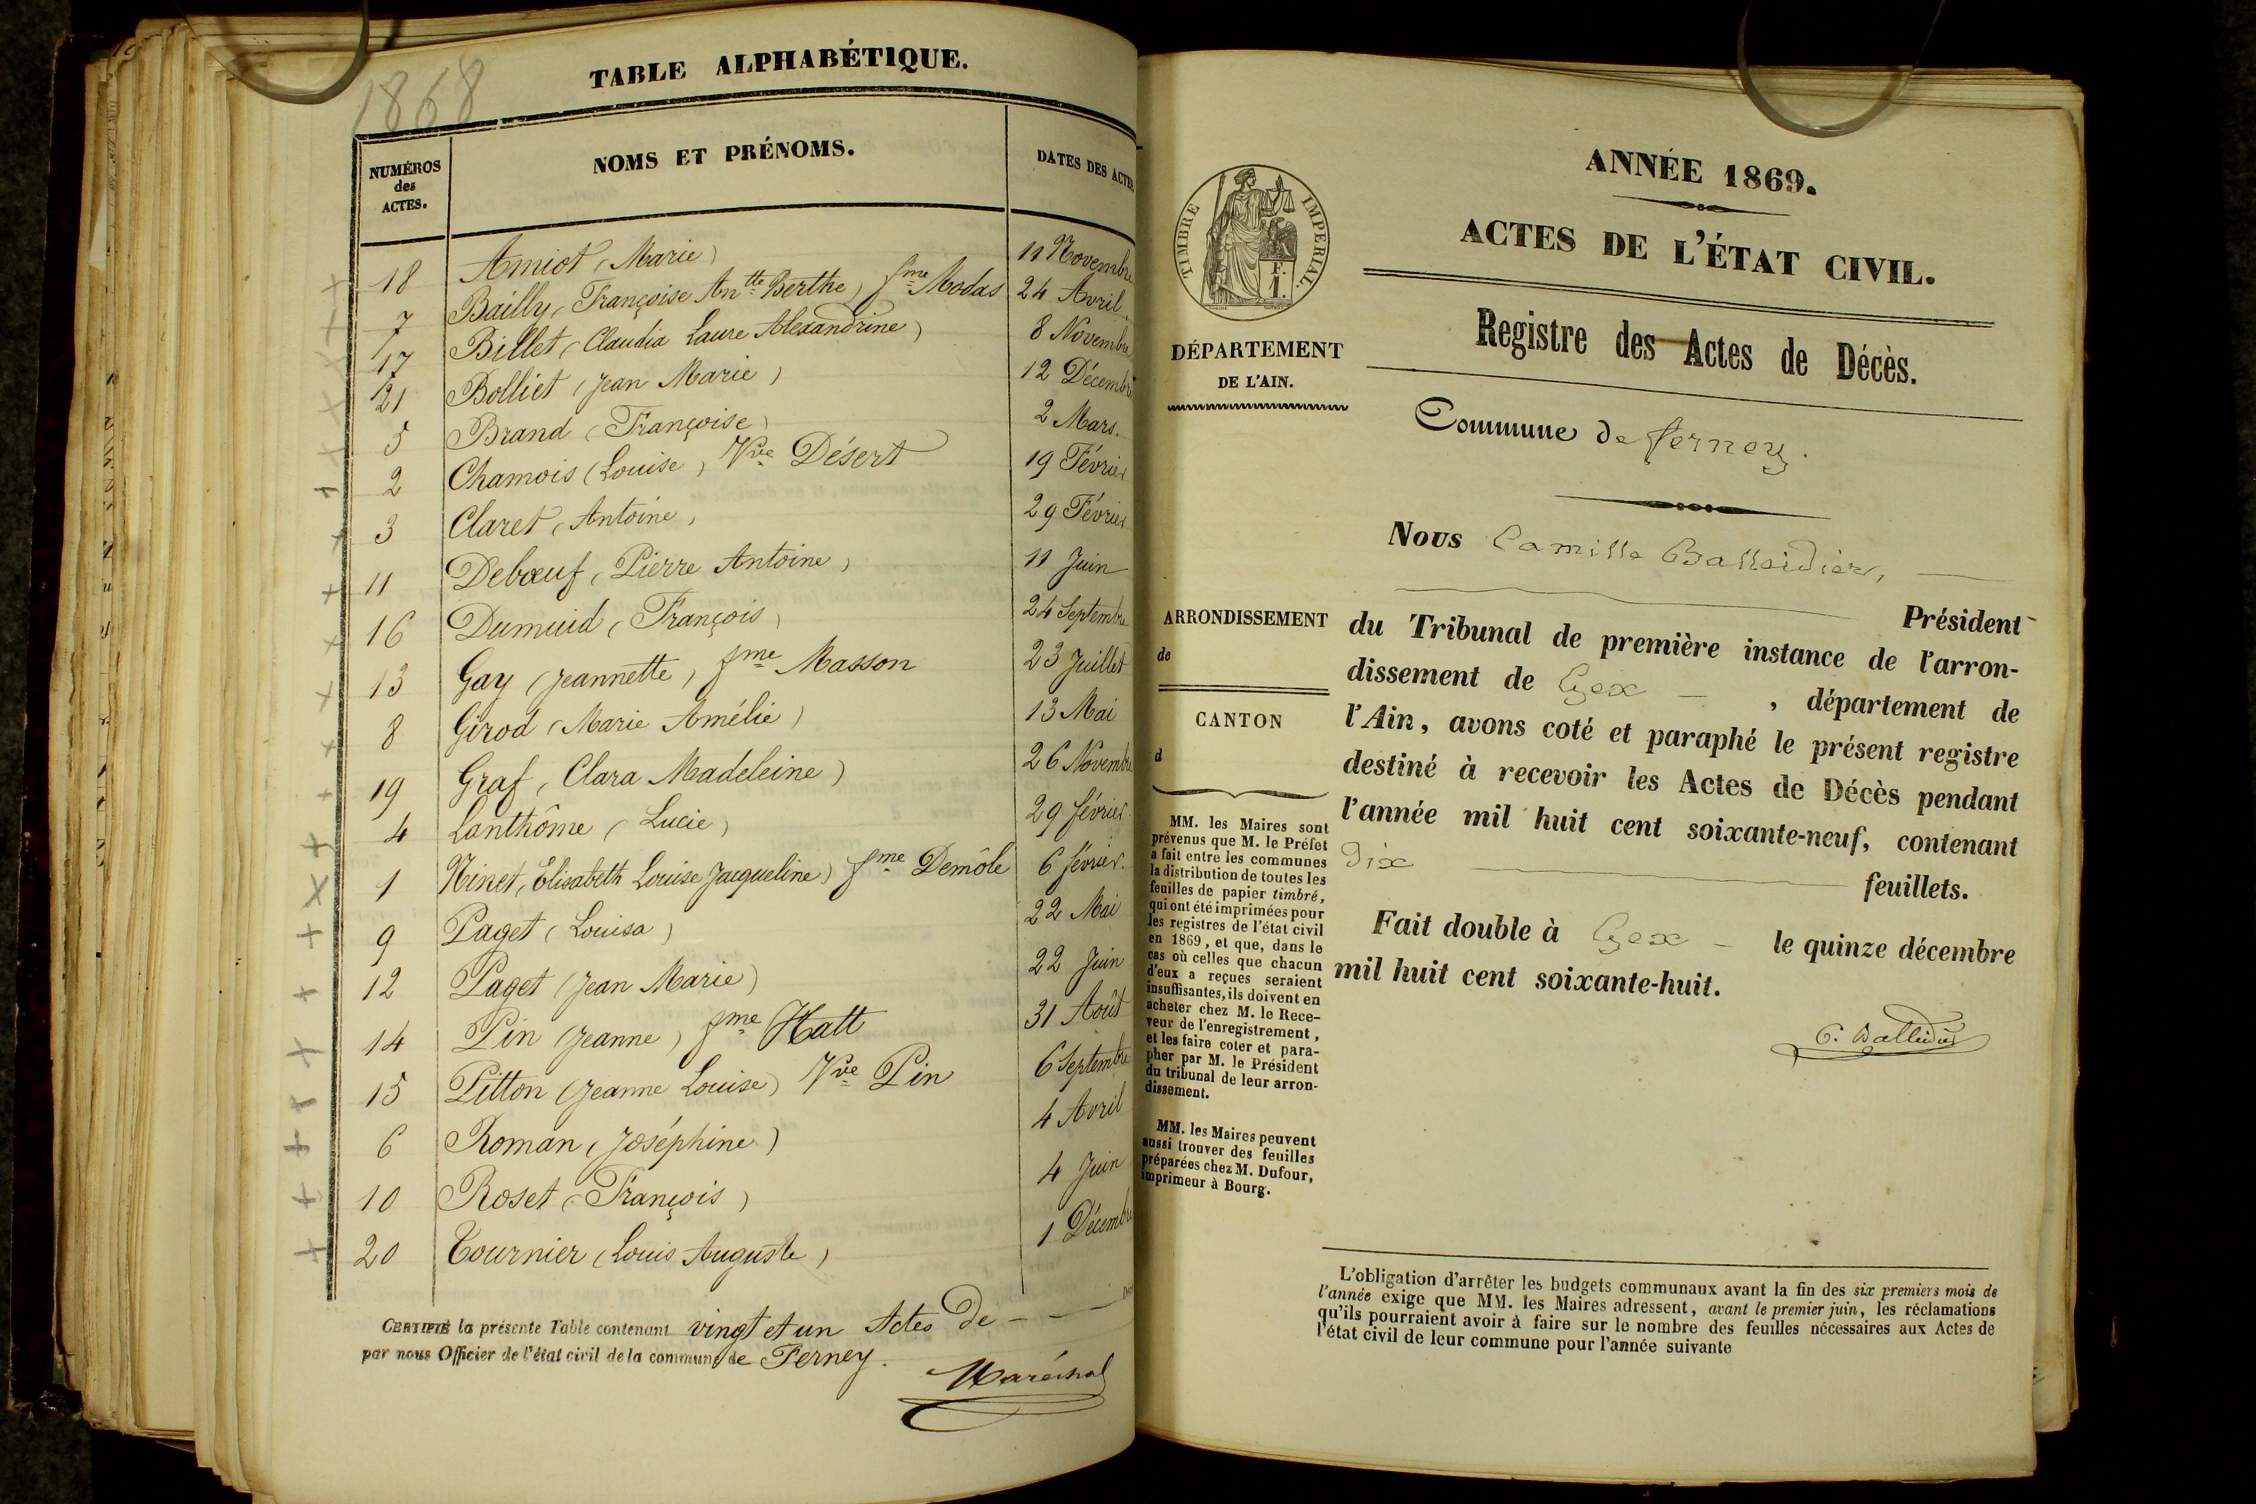 1868
TABLE ALPHABÉTIQUE.
NUMÉROS
des
ACTES.
NOMS ET PRÉNOMS.
DATES DES ACTES
18 Amiot (Marie) 11 Novembre
7 Bailly, Françoise Antte Berthe, fme Modas 24 Avril.
17 Billet (Claudia Laure Alexandrine) 8 Novembre
21 Bolliet (Jean Marie) 12 Décembre
5 Brand (Françoise) 2 Mars.
2 Chamois (Louise) Vve Désert 19 Février
3 Claret, Antoine, 29 Février
11 Debœuf, Pierre Antoine, 11 Juin
16 Dumuid, François, 24 Septembre
13 Gay (Jeannette, fme Masson 23 Juillet
8 Girod (Marie Amélie) 13 Mai
19 Graf, Clara Madeleine) 26 Novembre
4 Lanthôme (Lucie) 29 février
1 Ninet, Elisabeth Louise Jacqueline) fme Demôle 6 février.
9 Paget (Louisa) 22 Mai
12 Paget (Jean Marie) 22 Juin
14 Pin (Jeanne) fme Hatt 31 Août
15 Pitton (Jeanne Louise) Vve Pin 6 Septembre
6 Roman (Joséphine) 4 Avril
10 Roset (François) 4 Juin
20 Tournier (Louis Auguste) 1 Décembre
CERTIFIÉ la présente Table contenant vingt et un Actes De
par nous Officier de l'état civil de la commune de Ferney.
Maréchal
TIMBRE IMPERIAL.
F.
1.
DÉPARTEMENT
DE L'AIN.
ARRONDISSEMENT
de
CANTON
d
MM. les Maires sont
prévenus que M. le Préfet
a fait entre les communes
la distribution de toutes les
feuilles de papier timbré,
qui ont été imprimées pour
les registres de l'état civil
en 1869, et que, dans le
cas où celles que chacun
d'eux a reçues seraient
insuffisantes, ils doivent en
acheter chez M. le Rece-
veur de l'enregistrement,
et les faire coter et para-
pher par M. le Président
du tribunal de leur arron-
dissement.
MM. les Maires peuvent
aussi trouver des feuilles
préparées chez M. Dufour,
imprimeur à Bourg.
ANNÉE 1869.
ACTES DE L'ÉTAT CIVIL.
Registre des Actes de Décès.
Commune de ferney.
Nous Camille Balleidier,
Président
du Tribunal de première instance de l'arron-
dissement de Gex, département de
l'Ain, avons coté et paraphé le présent registre
destiné à recevoir les Actes de Décès pendant
l'année mil huit cent soixante-neuf, contenant
Dix feuillets.
Fait double à Gex le quinze décembre
mil huit cent soixante-huit.
C. Balleidier
L'obligation d'arrêter les budgets communaux avant la fin des six premiers mois de
l'année exige que MM. les Maires adressent, avant le premier juin, les réclamations
qu'ils pourraient avoir à faire sur le nombre des feuilles nécessaires aux Actes de
l'état civil de leur commune pour l'année suivante